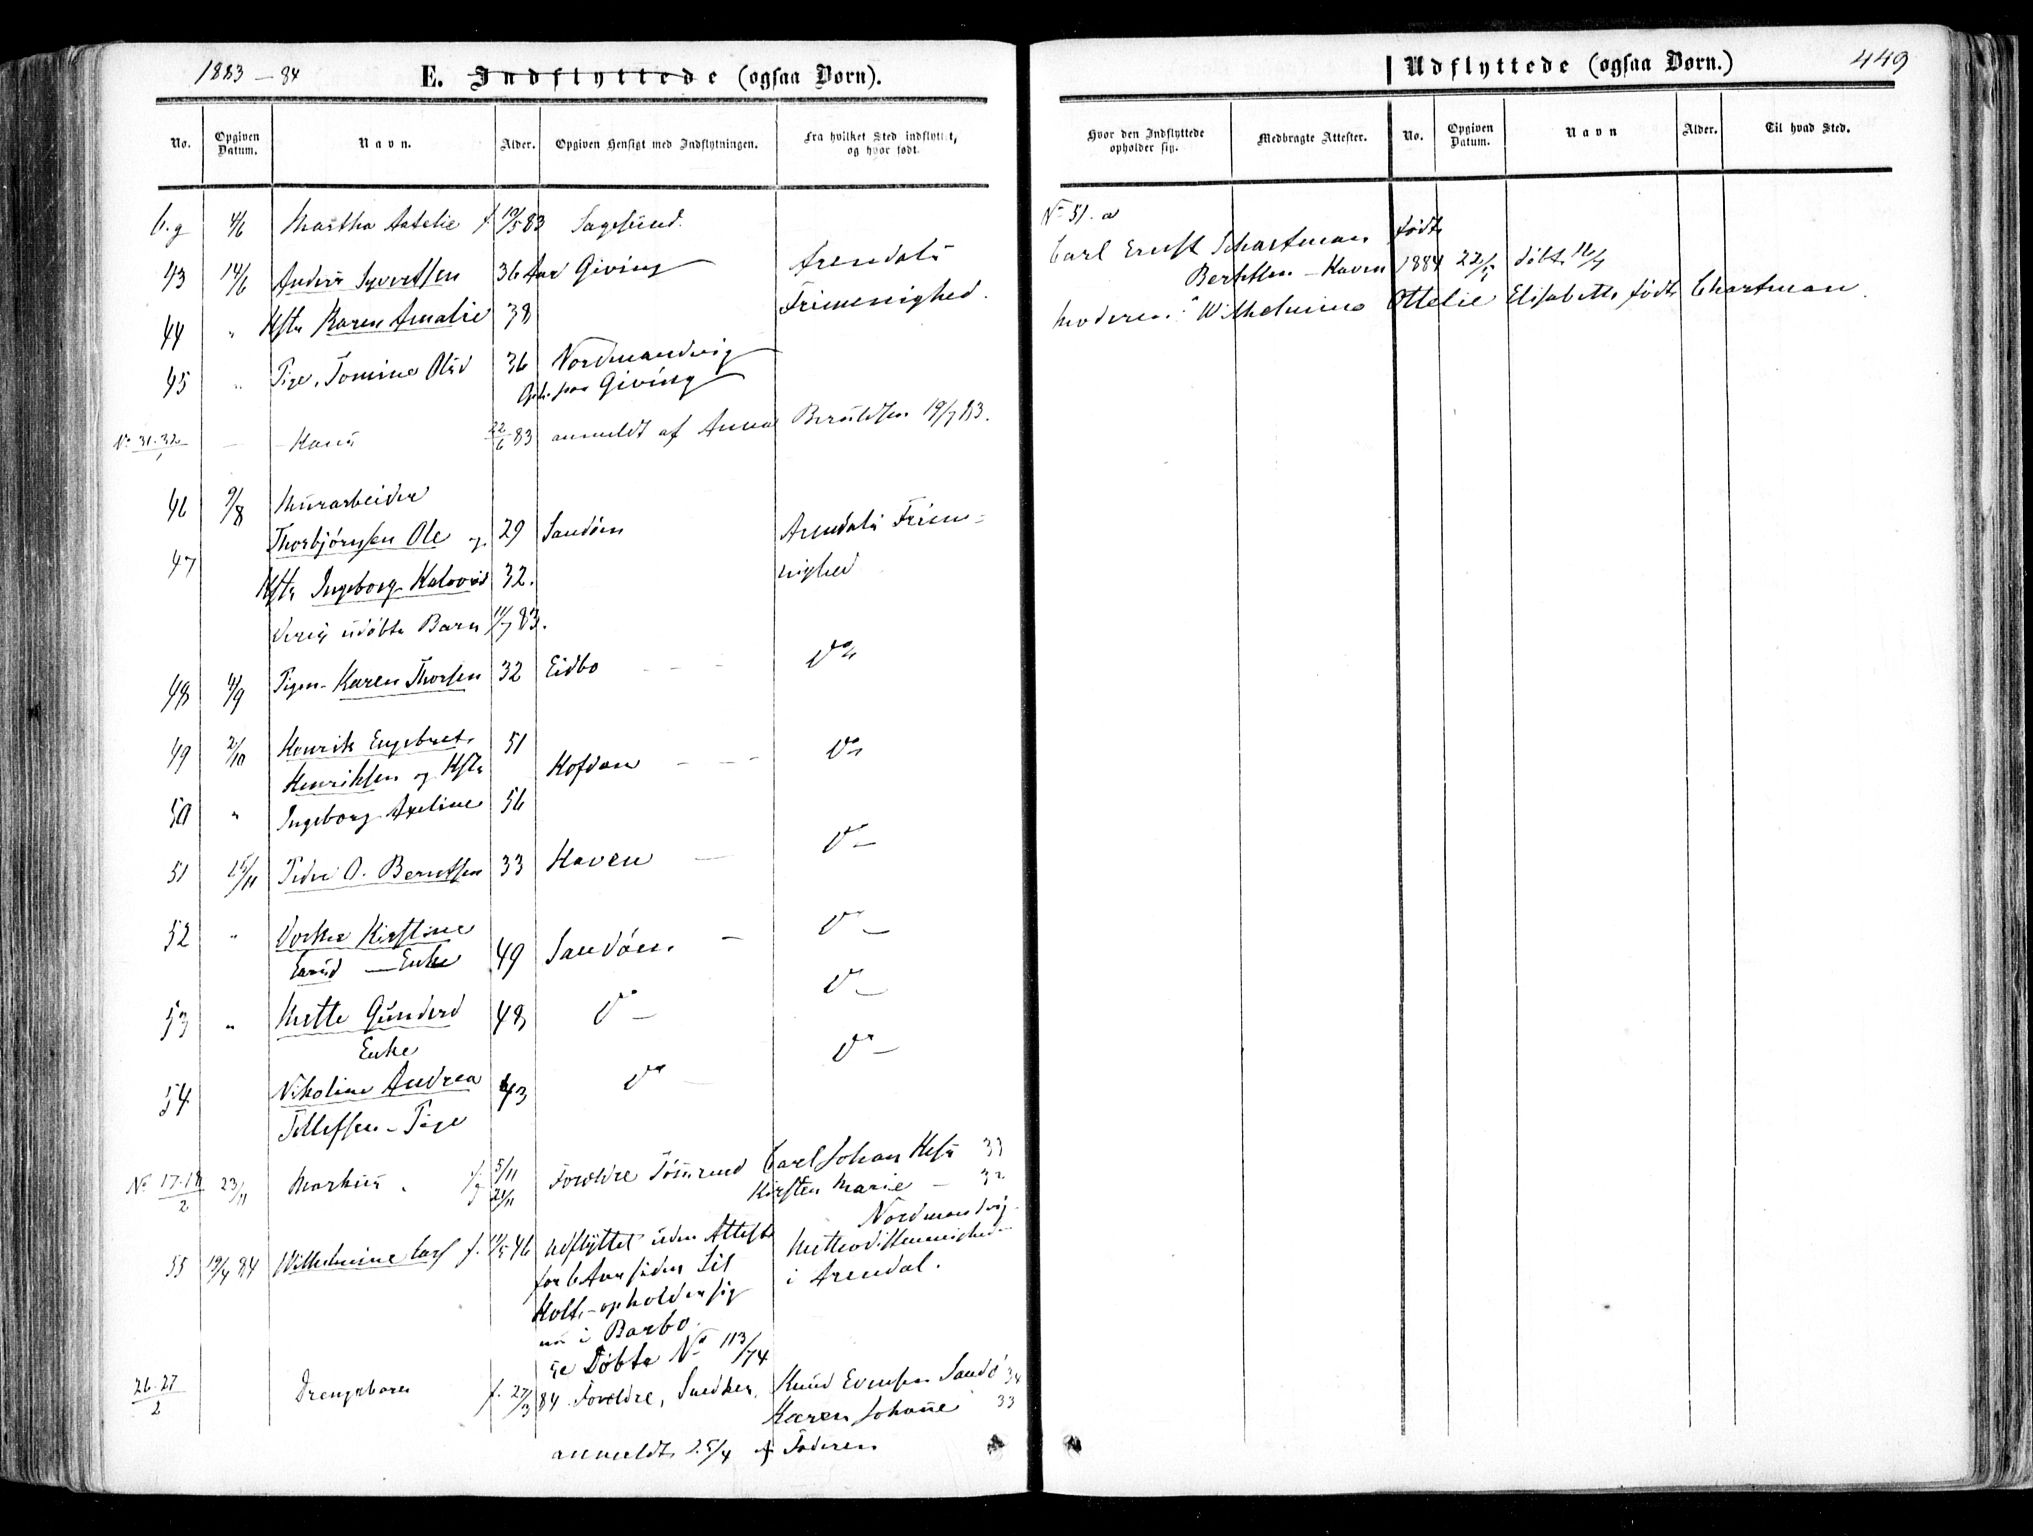 1883 - 84
E. Indflyttede (ogsaa Born).
No.
Opgiven Datum.
Navn.
Alder.
Opgiven Hensigt med Indflytningen.
Fra hvilket Sted indflyttet, og hvor født.
6.g 4/6 Martha Aatelie f 19/5 83 Sagesund.
43 14/6 Anders Syvertsen 36 Aar Giving Arendals
44 " Hstr Karen Amalie 38 Frimenighed.
45 " Pige, Tomine Olsd 36 Nordmandvig
Giving
No 31-32 - Hans 22/6 83 anmeldt af Anna Berntsen 19/7 83.
46 9/8 Murarbeider
Thorbjørnsen Ole og 29 Sandøen Arendals Frim-
47 Hstr Ingeborg Halvorsd 32. nighed
deres udøbte Barn 11/7 83.
48 4/9 Pigen Karen Thorsen 32 Eidbo - - - Do
49 2/10 Henrik Engebret 51
Henriksen og Hstr Kofdan - - - Do
50 " Ingeborg Axeline 56
51 15/11 Peder O. Berntsen 33 Haven - Do -
52 " Kirstine Do -
Enke 49 Sandøen. -
53 " Mette Gundersd 48 Do - Do -
Enke
54 Nikoline Andrea 43 Do - Do -
Tellefsen - Pige
No 17-18/2 23/11 Markus f 5/11 Forældre Tømrmd Carl Johan 33
21/11 Kirsten Marie - 32
Nordmandvig
55 19/4 84 Wilhelmine f. 11/5 46 Udflyttet uden Attest Methodistmenighed
for 6 Aar siden til i Arendal.
Holt - opholder sig
nu i Barbo.
se Døbte No 113/74
26-27/2 Drengebarn f. 27/3 84 Forældre, Snedker, Knud Evensen Sandø 34
Karen Johanne 33
anmeldt 25/4 af Faderen
Udflyttede (ogsaa Born.) 449
Hvor den Indflyttede opholder sig.
Medbragte Attester.
No.
Opgiven Datum.
Navn
Alder.
Til hvad Sted.
No 51. a
Carl Ernst Schartman født
Berntsen - Haven 1884 22/5 døbt 16/7
moderen: Wilhelmine Ottelie Elisabeth født Chartman.